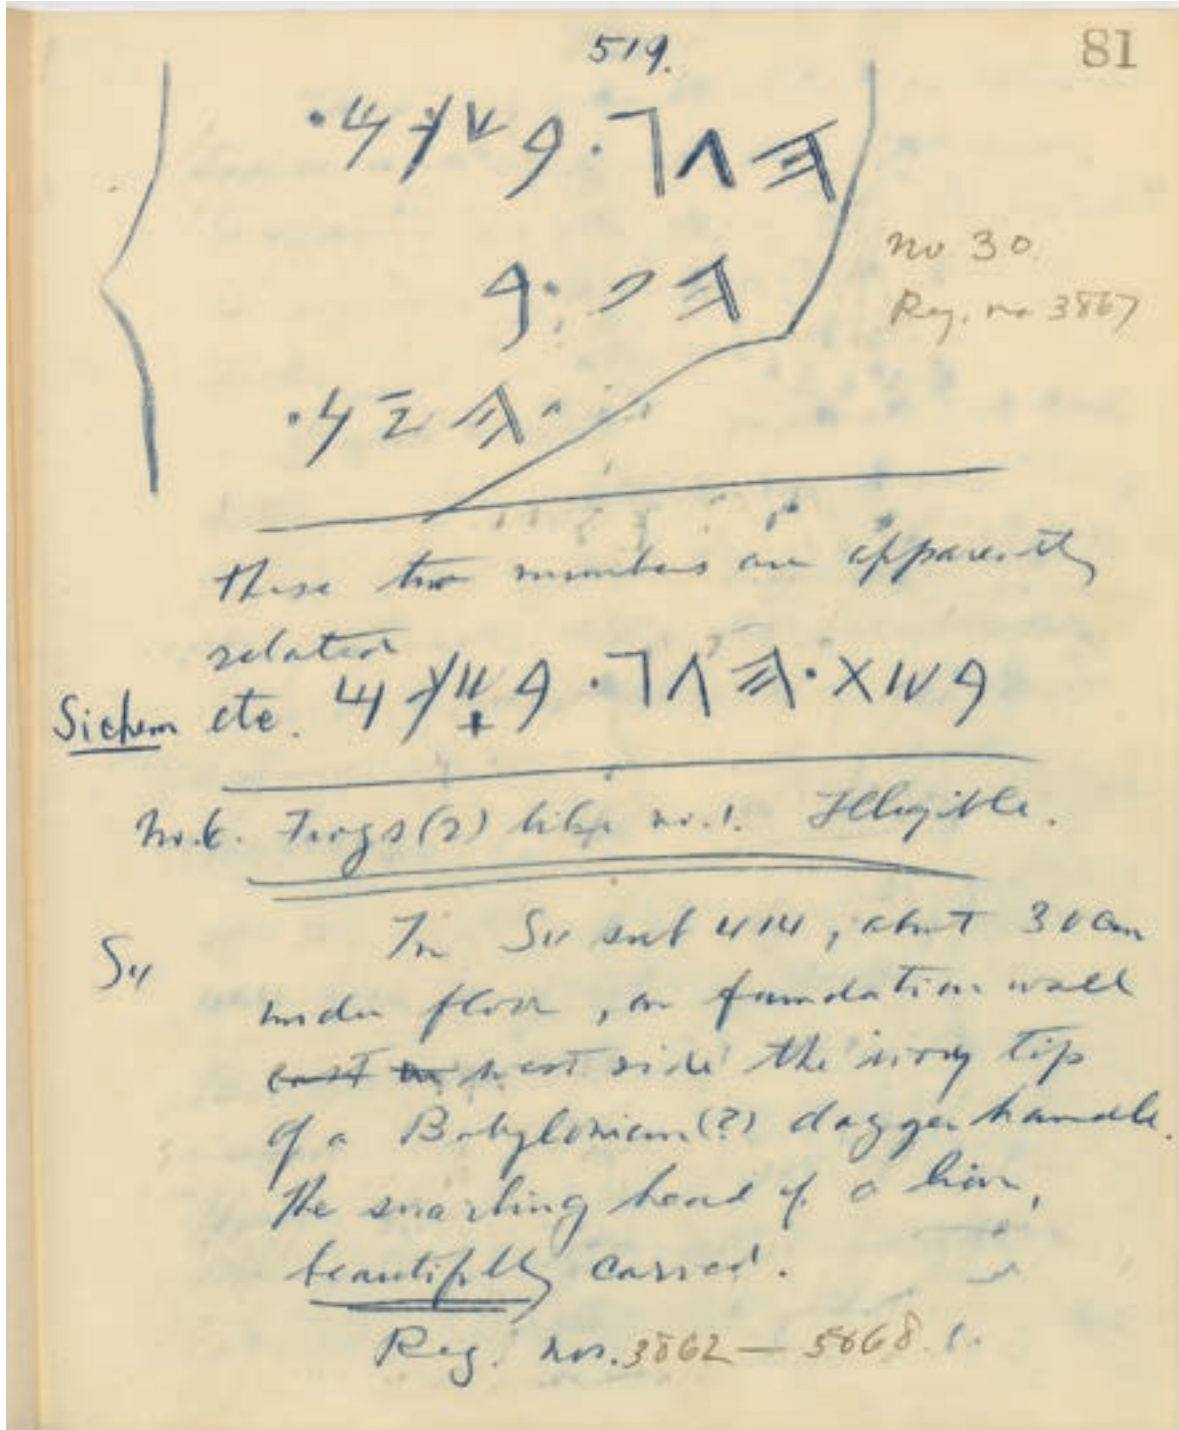 81
519.
No 30.
Reg. no 3867
𐤄𐤉𐤍·
These two numbers are apparently
related
Sichem etc. 𐤁𐤔𐤕·𐤄
No.6. Frags(2) like no.1. Illegible.
S4 In S4 sub 414, about 30 cm
under floor, on foundation wall
east west side the ivory tip
of a Babylonian(?) dagger handle.
The snarling head of a lion,
beautifully carved.
Reg. nos. 3862 — 5868